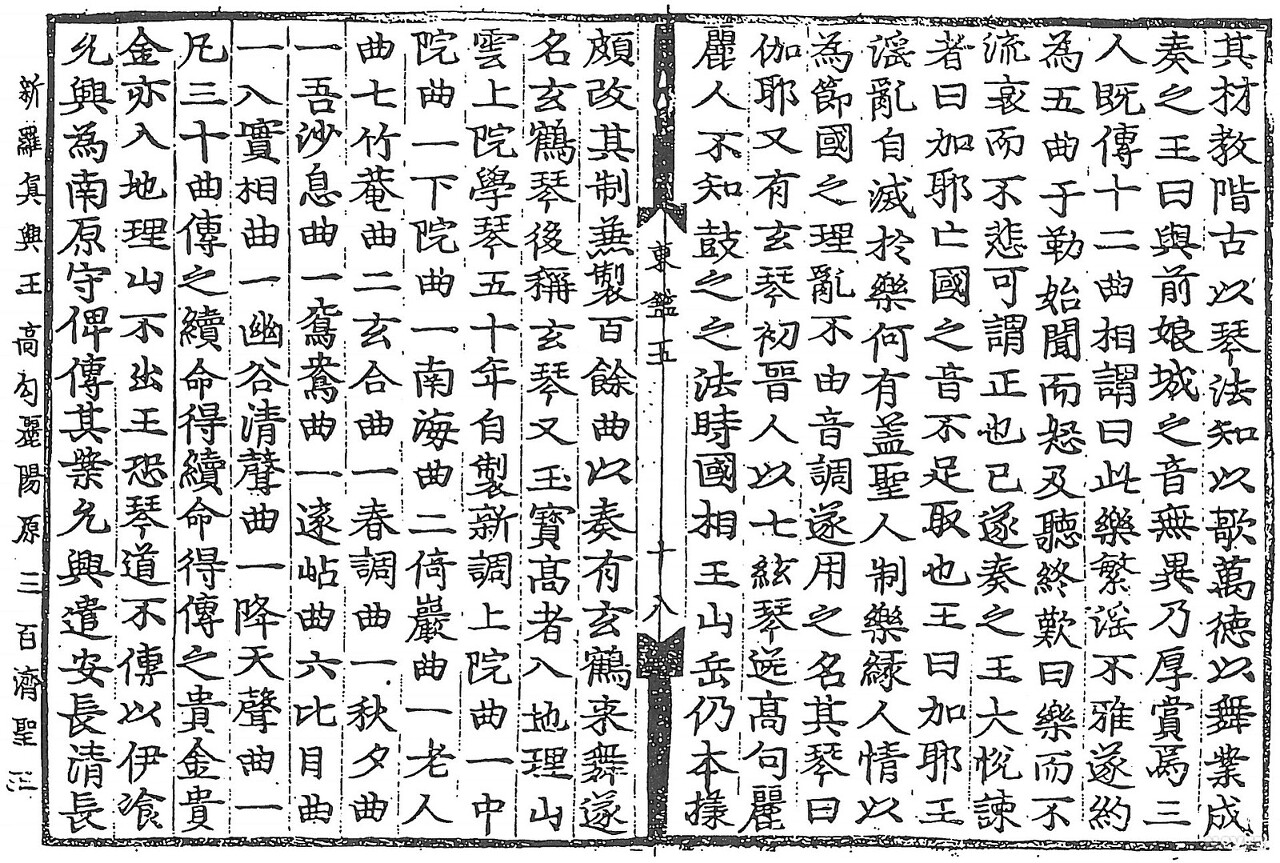 其材教階古以琴法知以歌萬德以舞業成
奏之王曰與前娘城之音無異乃厚賞焉三
人旣傳十二曲相謂曰此樂繁淫不雅遂約
為五曲于勒始聞而怒及聽終歎曰樂而不
流哀而不悲可謂正也已遂奏之王大悅諫
者曰加耶亡國之音不足取也王曰加耶王
淫亂自滅於樂何有盖聖人制樂緣人情以
為節國之理亂不由音調遂用之名其琴曰
伽耶又有玄琴初晉人以七絃琴送高句麗
麗人不知鼓之之法時國相王山岳仍本㨾
東鑑五 十八
頗改其制兼製百餘曲以奏有玄鶴来舞遂
名玄鶴琴後稱玄琴又玉寶高者入地理山
雲上院學琴五十年自製新調上院曲一中
院曲一下院曲一南海曲二倚巖曲一老人
曲七竹菴曲二玄合曲一春調曲一秋夕曲
一吾沙息曲一鴛鴦曲一遠岵曲六比目曲
一入實相曲一幽谷清聲曲一降天聲曲一
凡三十曲傳之續命得續命得傳之貴金貴
金亦入地理山不出王恐琴道不傳以伊飡
允興為南原守俾傳其業允興遣安長清長
新羅眞興王 高勾麗陽原王 百濟聖王